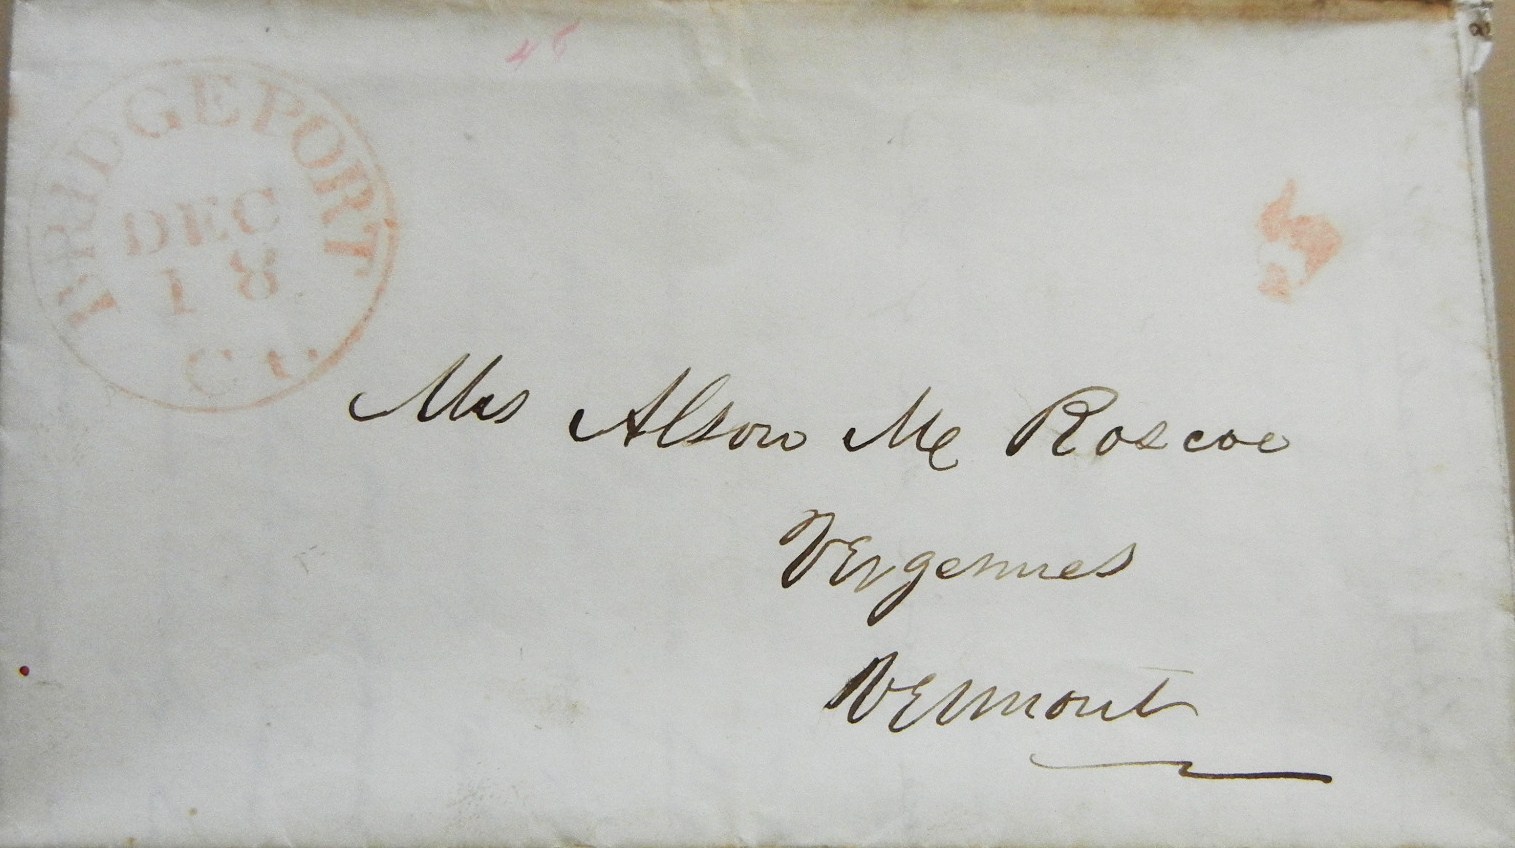 BRIDGEPORT
DEC
18
Ct.
5
Mrs Alson Mc Roscoe
Vergennes
Vermont